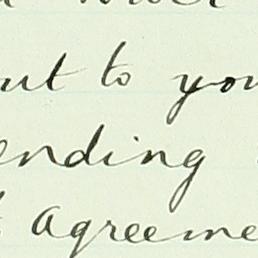 ut to you
ending
agreeme